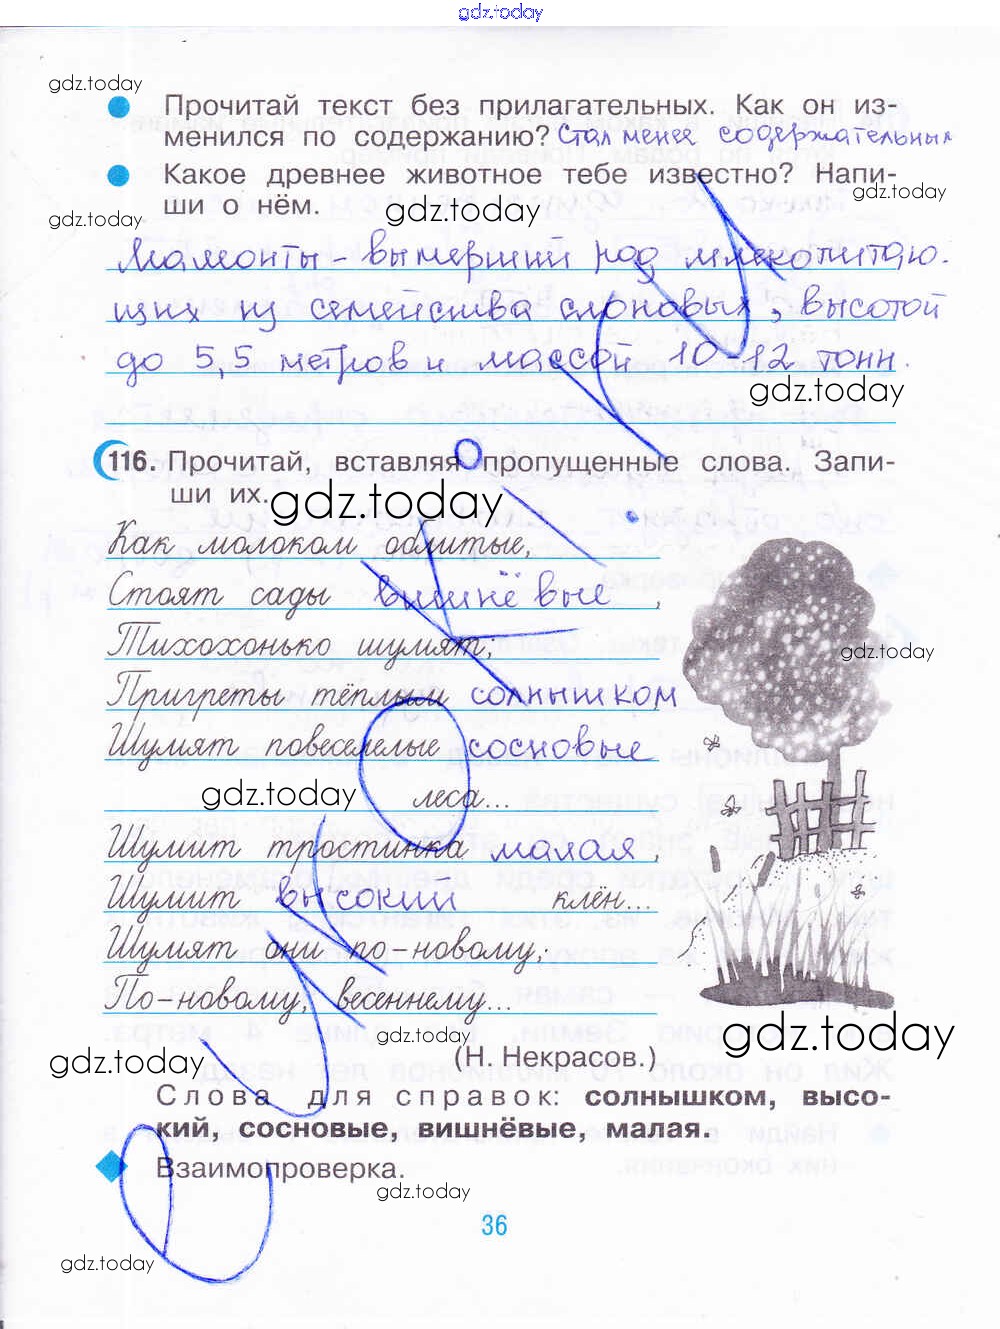 gdz.today
gdz.today
Прочитай текст без прилагательных. Как он из-
менился по содержанию? Стал менее содержательным
Какое древнее животное тебе известно? Напи-
gdz.today
ши о нём.
gdz.today
gdz.today
Мамонты - вымерший род млекопитаю-
щих из семейства слоновых, высотой
до 5,5 метров и массой 10-12 тонн.
gdz.today
116. Прочитай, вставляя пропущенные слова. Запи-
ши их.
gdz.today
Как молоком облитые,
Стоят сады вишнёвые,
Тихохонько шумят;
gdz.today
Пригреты тёплым солнышком
Шумят повеселелые сосновые
gdz.today
леса...
Шумит тростинка малая,
Шумит высокий клён...
Шумят они по-новому,
По-новому, весеннему...
gdz.today
gdz.today
gdz.today
(Н. Некрасов.)
Слова для справок: солнышком, высо-
кий, сосновые, вишнёвые, малая.
Взаимопроверка.
gdz.today
36
gdz.today